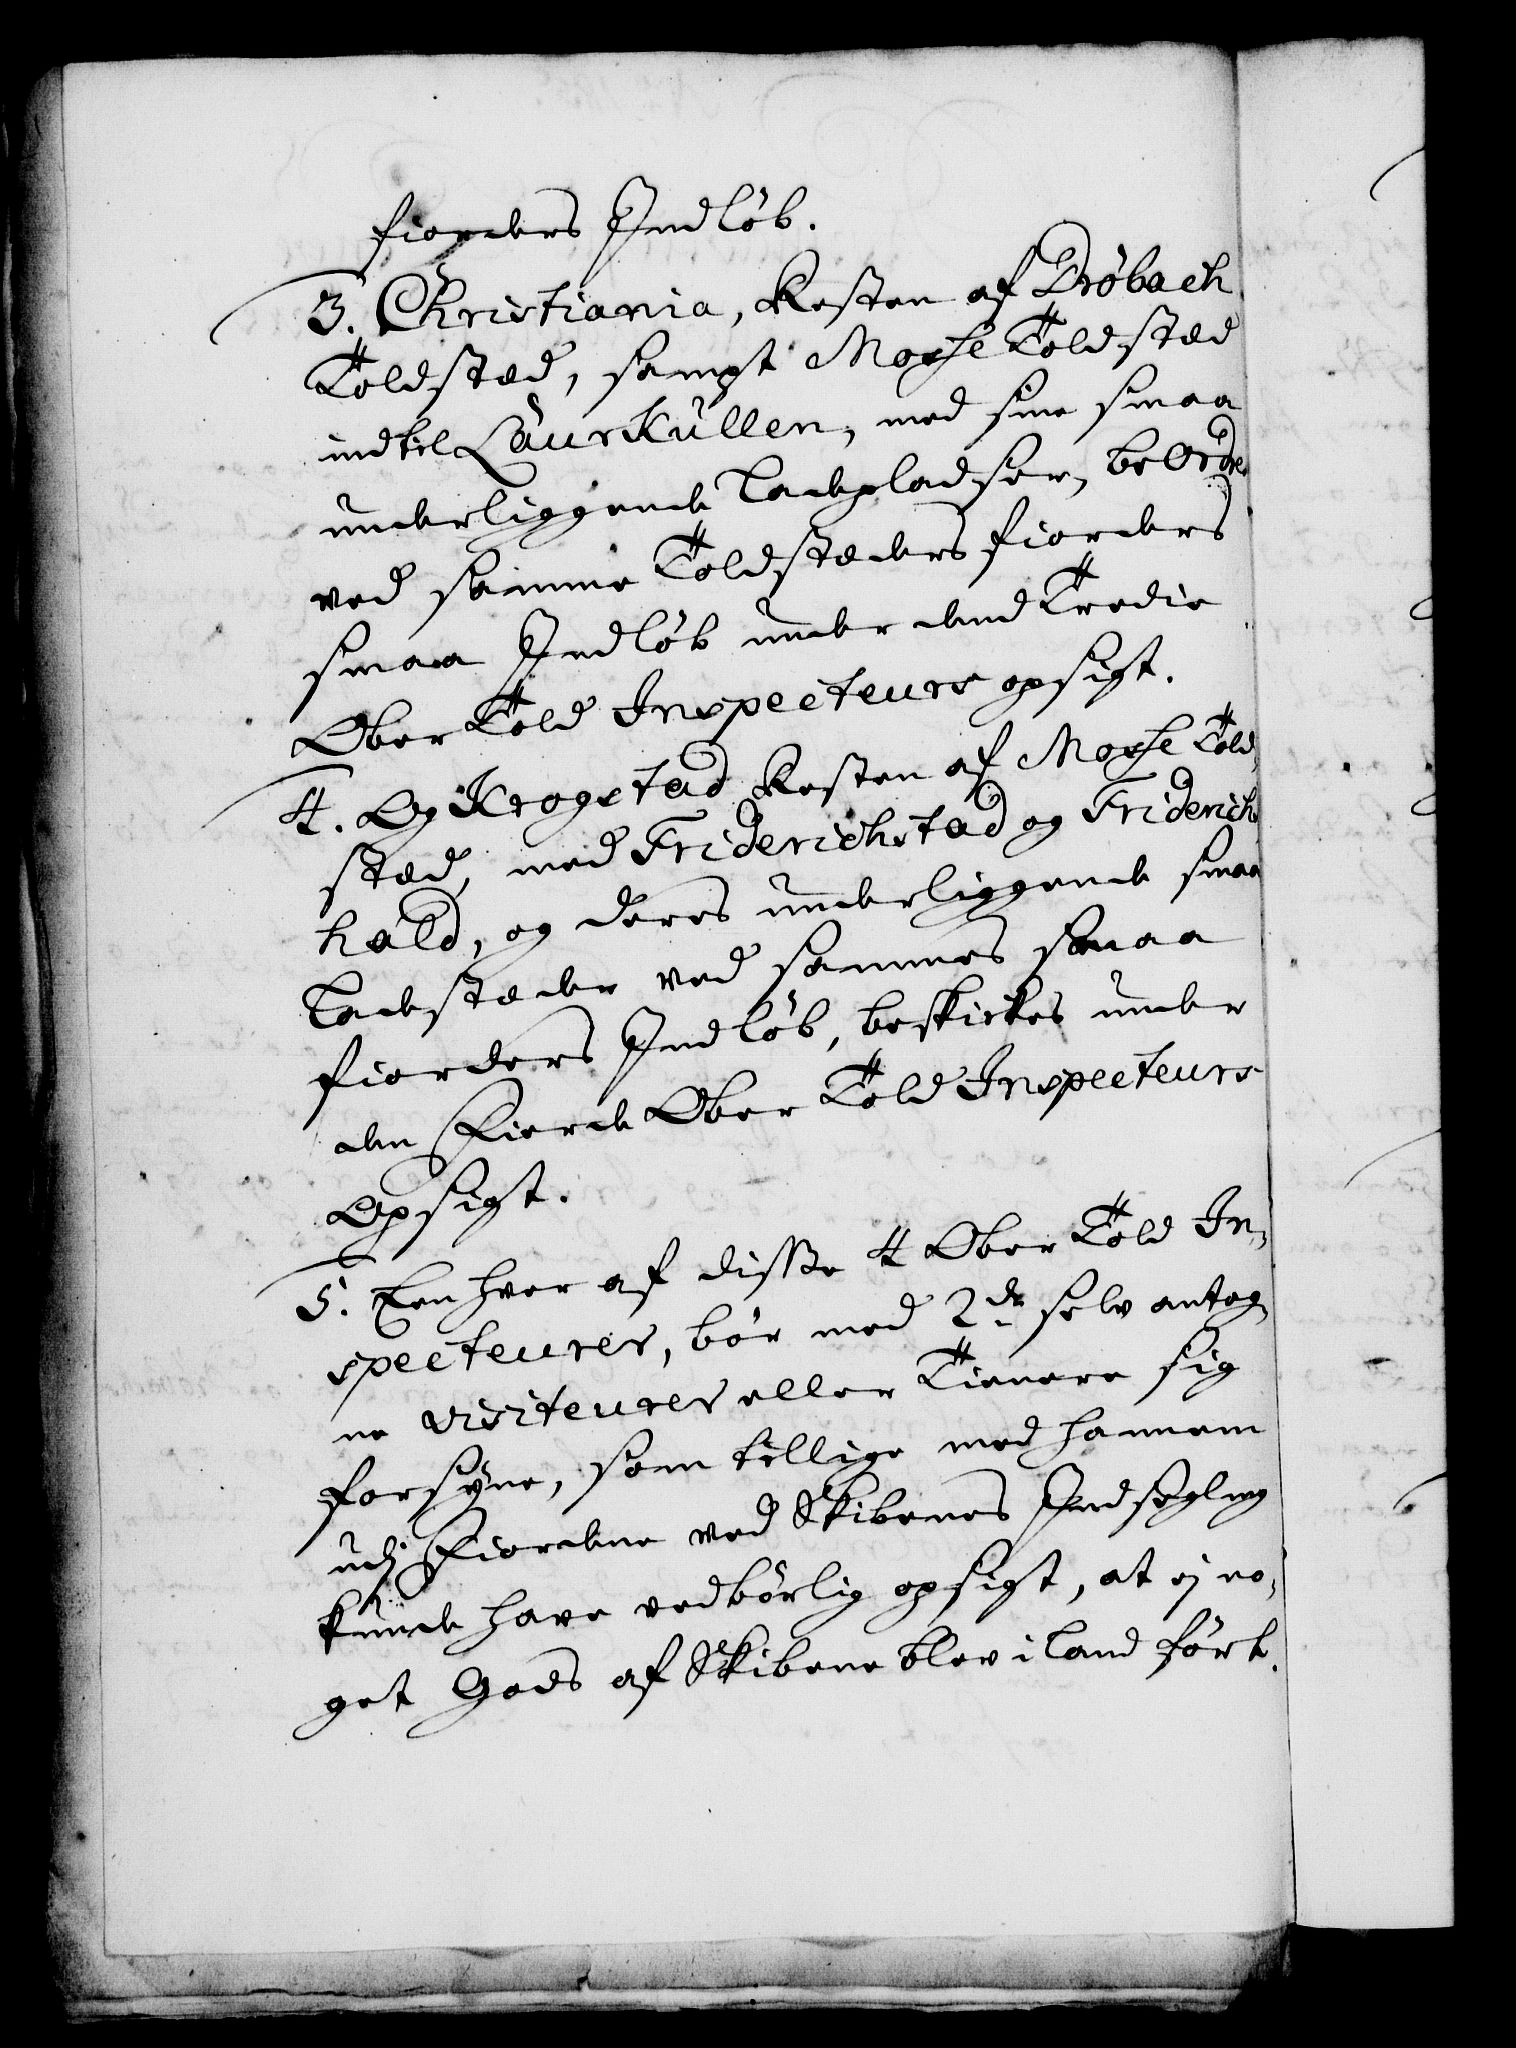 fiorders Indløb.
3. Christiania, Resten af Drøbach
Toldsted, sampt Mosse Toldsted
indtil Laurkullen, med sine smaa
underliggende Ladepladser, beordre
ved samme Toldsteders fiorders
smaa Indløb under dend Tredie
Ober Told Inspecteurs opsigt.
4. Og Krogstad Resten af Mosse Told,
sted, med Friderichstad og Friderichs
hald, og deres underliggende smaa
Ladesteder ved sammes smaa
fiorders Indløb, beskickes under
den Fierde Ober Told Inspecteurs
Opsigt.
5. Een hver af disse 4 Ober Told In,
specteurer, bør med 2de selv antag,
ne visiteurer eller Tienere sig
forsÿne, som tillige med hannem
udj Fiordene ved Skibenes Indsegling
kunde have vedbørlig opsigt, at ej no,
get Gods af Skibene blev i land ført.